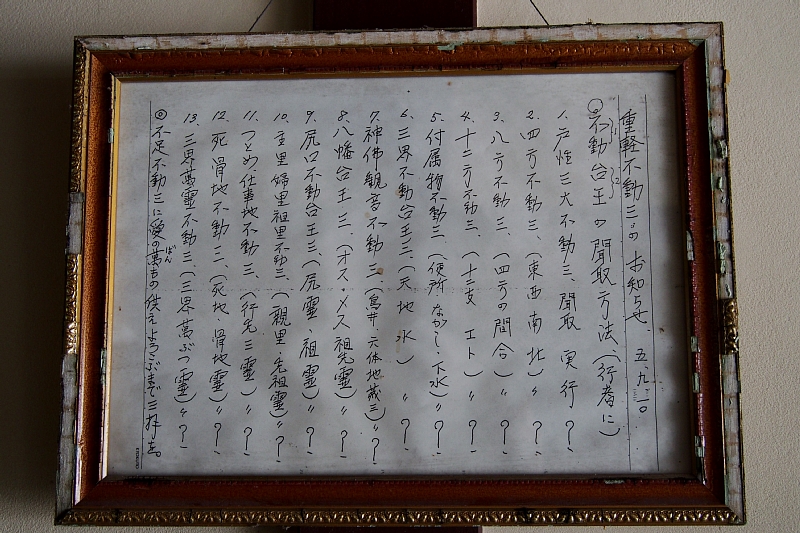 重軽不動三のお知らせ、 五、九、二〇
◎不動台王の聞取方法(行者に)
1. 戸性三大不動三、聞取 実行?
2. 四方不動三、(東西南北)〃?
3. 八方不動三、(四方の間合)〃?
4. 十二方不動三、(十二支 エト)〃?
5. 付属物不動三、(便所、ながし、下水)〃?
6. 三界不動台王三、(天地水)〃?
7. 神佛観音不動三、(鳥井、六体地蔵三)〃?
8. 八幡台王三、(オス・メス祖先霊)〃?
9. 尻口不動台王三、(尻霊・祖霊)〃?
10. 主里婦里祖里不動三、(親里・先祖霊)〃?
11. つとめ仕事地不動三、(行先三霊)〃?
12. 死骨地不動三、(死地、骨地霊)〃?
13. 三界萬霊不動三、(三界萬ぶつ霊)〃?
◎不足不動三に愛の萬もの供えよろこぶまで三拝を。
ばん